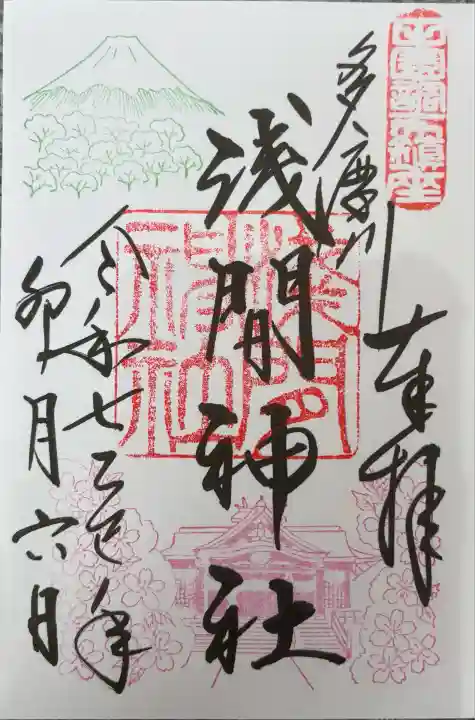 多摩川
奉拝
浅間神社
淺間
神社
令和七乙巳年
卯月六日